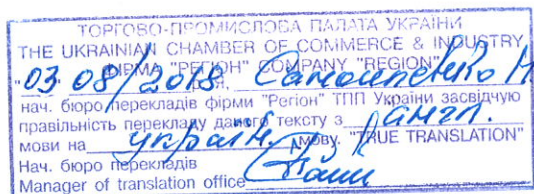 ТОРГОВО-ПРОМИСЛОВА ПАЛАТА УКРАЇНИ
THE UKRAINIAN CHAMBER OF COMMERCE & INDUSTRY
ФІРМА "РЕГІОН" COMPANY "REGION"
"03 08/2018, Самойленко Н
нач. бюро перекладів фірми "Регіон" ТПП України засвідчую
правільність перекладу даного тексту з англ.
мови на україн. мову. "TRUE TRANSLATION"
Нач. бюро перекладів
Manager of translation office